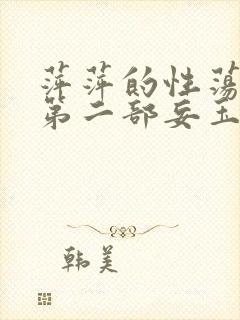 萍萍的性荡
第二部妄玉
韩美